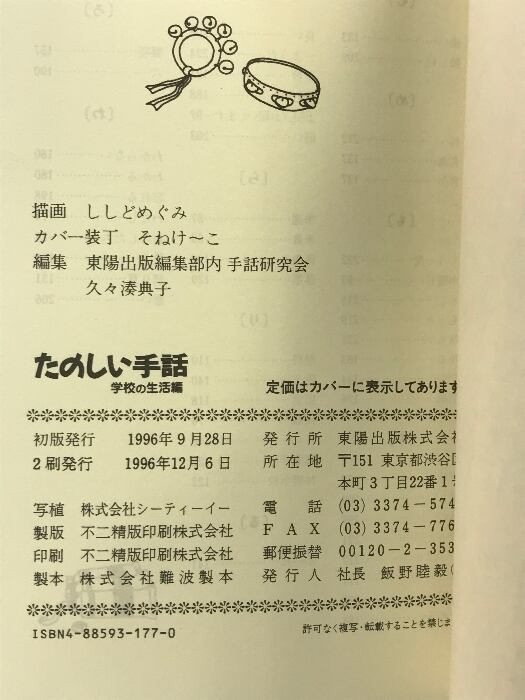 描画　ししどめぐみ
カバー装丁　そねけ〜こ
編集　東陽出版編集部内 手話研究会
久々湊典子
たのしい手話
学校の生活編
定価はカバーに表示してあります
初版発行　1996年9月28日
2刷発行　1996年12月6日
写植　株式会社シーティーイー
製版　不二精版印刷株式会社
印刷　不二精版印刷株式会社
製本　株式会社難波製本
発行所　東陽出版株式会社
所在地　〒151 東京都渋谷区
本町3丁目22番1号
電話　(03) 3374-574
FAX　(03) 3374-776
郵便振替　00120-2-353
発行人　社長　飯野睦毅
ISBN4-88593-177-0
許可なく複写・転載することを禁じま